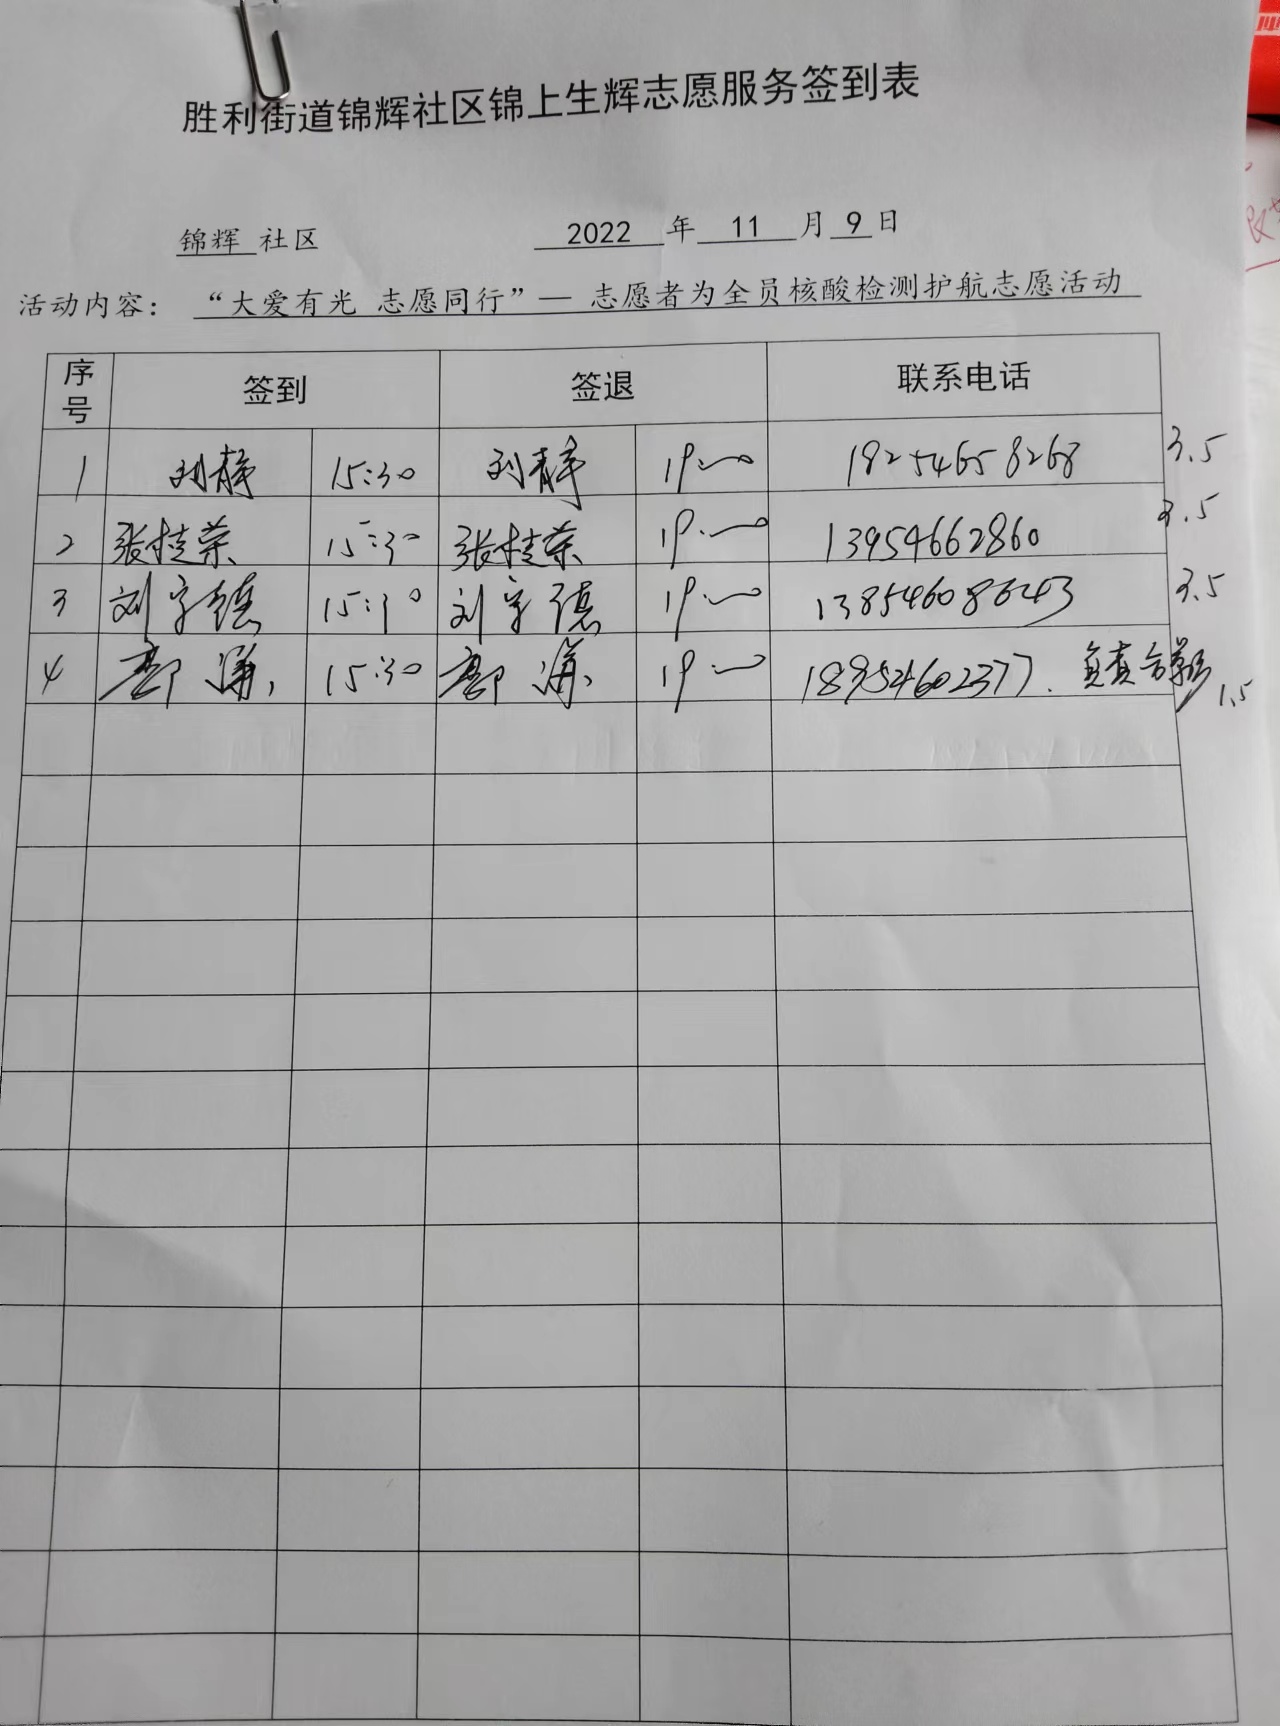 胜利街道锦辉社区锦上生辉志愿服务签到表
锦辉 社区 2022 年 11 月 9 日
活动内容： “大爱有光 志愿同行”— 志愿者为全员核酸检测护航志愿活动
序号 签到 签退 联系电话
1 刘静 15:30 刘静 19:00 18254658268 3.5
2 张桂荣 15:30 张桂荣 19:00 13954662860 3.5
3 刘字德 15:30 刘字德 19:00 13854608643 3.5
4 15:30 19:00 189524602377. 1.5